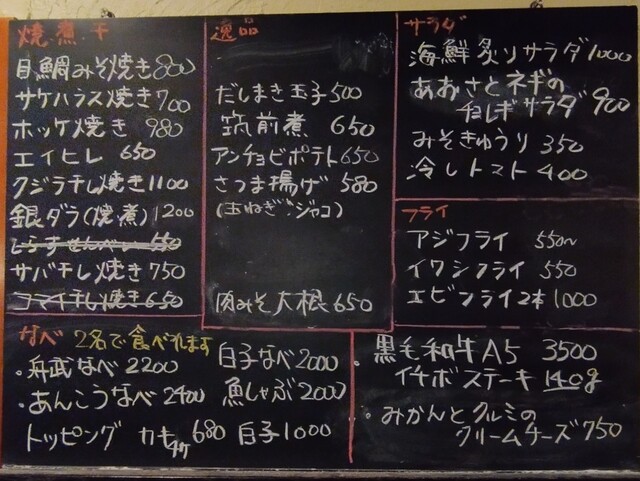 焼煮干
目鯛みそ焼き800
サケハラス焼き700
ホッケ焼き 980
エイヒレ 650
クジラ干し焼き1100
銀ダラ(焼煮)1200
しらすせんべい 550
サバ干し焼き750
コマイ干し焼き650
逸品
だしまき玉子500
筑前煮 650
アンチョビポテト650
さつま揚げ 580
(玉ねぎ・ジャコ)
肉みそ大根650
サラダ
海鮮炙りサラダ1000
あおさとネギの
チョレギサラダ 900
みそきゅうり 350
冷しトマト 400
フライ
アジフライ 550~
イワシフライ 550
エビフライ2本1000
なべ 2名で食べれます
・舟武なべ2200
・あんこうなべ2400
白子なべ2000
魚しゃぶ2000
トッピング カキ4ケ 680 白子1000
・黒毛和牛A5 3500
イチボステーキ140g
・みかんとクルミの
クリームチーズ750